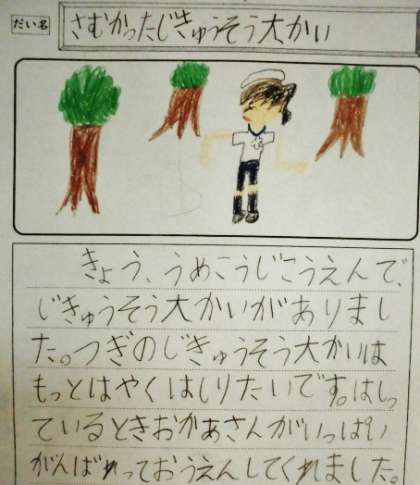 だい名
さむかったじきゅうそう大かい
きょう、うめこうじこうえんで、
じきゅうそう大かいがありまし
た。つぎのじきゅうそう大かいは
もっとはやくはしりたいです。はしっ
ているときおかあさんがいっぱい
がんばれっておうえんしてくれました。